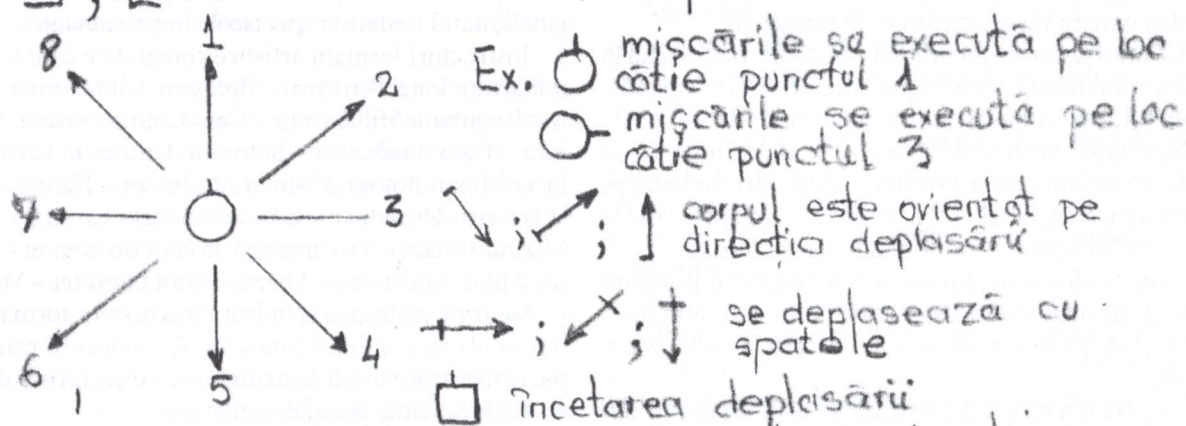 8
1
2
3
4
5
6
7
Ex. mişcările se execută pe loc
cătie punctul 1
mişcările se execută pe loc
cătie punctul 3
; ; corpul este orientat pe
direcţia deplasării
; ; se deplasează cu
spatele
încetarea deplasării